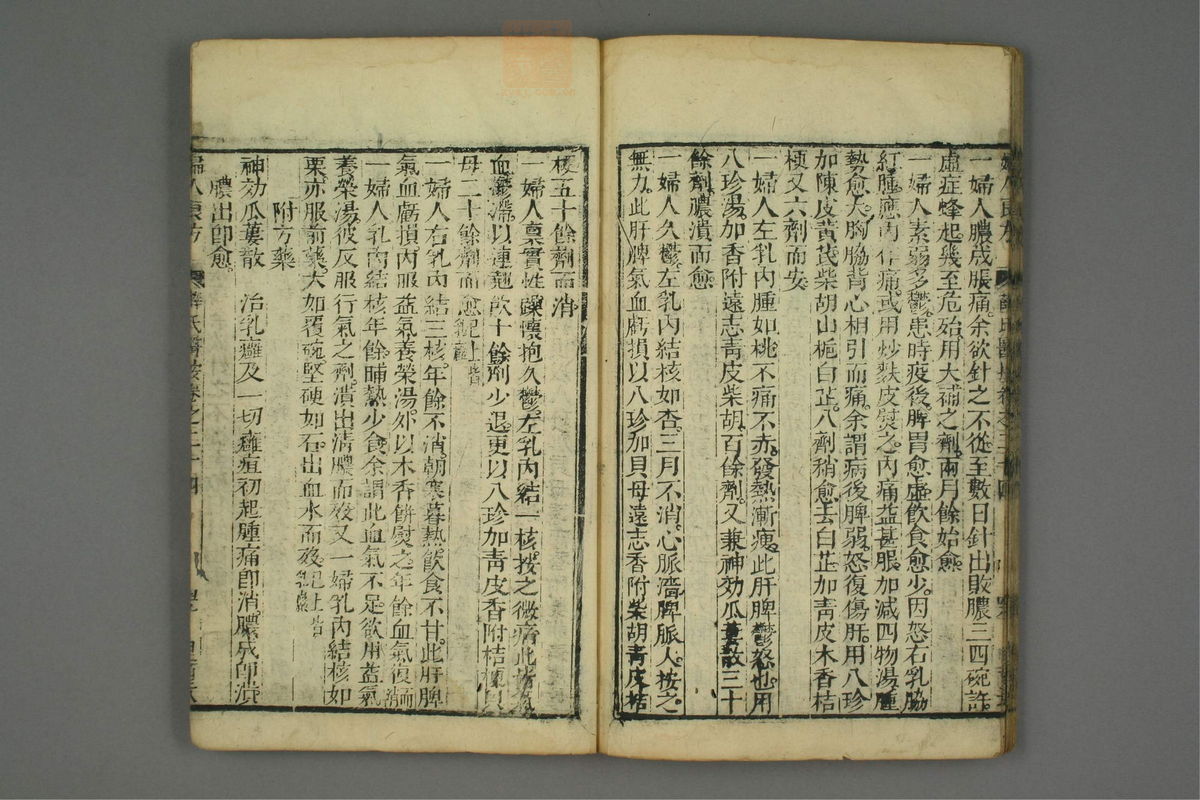 一婦人膿成脹痛。余欲針之不從至數日針出敗膿三四碗許。
虛症蜂起幾至危殆。用大補之劑。兩月餘始愈。
一婦人素弱多鬱。患時疫後。脾胃愈虛飲食愈少。因怒右乳脇
紅腫。應內作痛。或用炒麩皮熨之。內痛益甚。服加減四物湯腫
勢愈大。胸脇背心相引而痛。余謂病後脾弱。怒復傷肝。用八珍
加陳皮黃芪柴胡山梔白芷。八劑稍愈去白芷加青皮木香桔
梗又六劑而安
一婦人左乳內腫如桃不痛不赤。發熱漸瘦。此肝脾鬱怒也用
八珍湯。加香附遠志青皮柴胡。百餘劑。又兼神効瓜蔞散三十
餘劑。膿潰而愈
一婦人久鬱。左乳內結核如杏。三月不消。心脈濇脾脈大。按之
無力。此肝脾氣血虧損以八珍加貝母遠志香附柴胡青皮桔
梗五十餘劑而消
一婦人禀實性躁。懷抱久鬱。左乳內結一核。按之微痛此
血鬱滯以連翹飲十餘劑少退。更以八珍加青皮香附桔梗貝
母二十餘劑而愈
一婦人右乳內結三核。年餘不消。朝寒暮熱飲食不甘。此肝脾
氣血虧損內服益氣養榮湯。外以木香餅熨之。年餘血氣復而消
一婦人乳內結核年餘。晡熱少食余謂此血氣不足欲用益氣
養榮湯。彼反服行氣之劑。潰出清膿而歿又一婦乳內結核如
栗亦服前藥。大如覆碗。堅硬如石。出血水而歿
附方藥
神効瓜蔞散　治乳癰及一切癰疽初起腫痛即消。膿成即潰
膿出即愈。
婦人良方　薛氏醫按卷之二十四